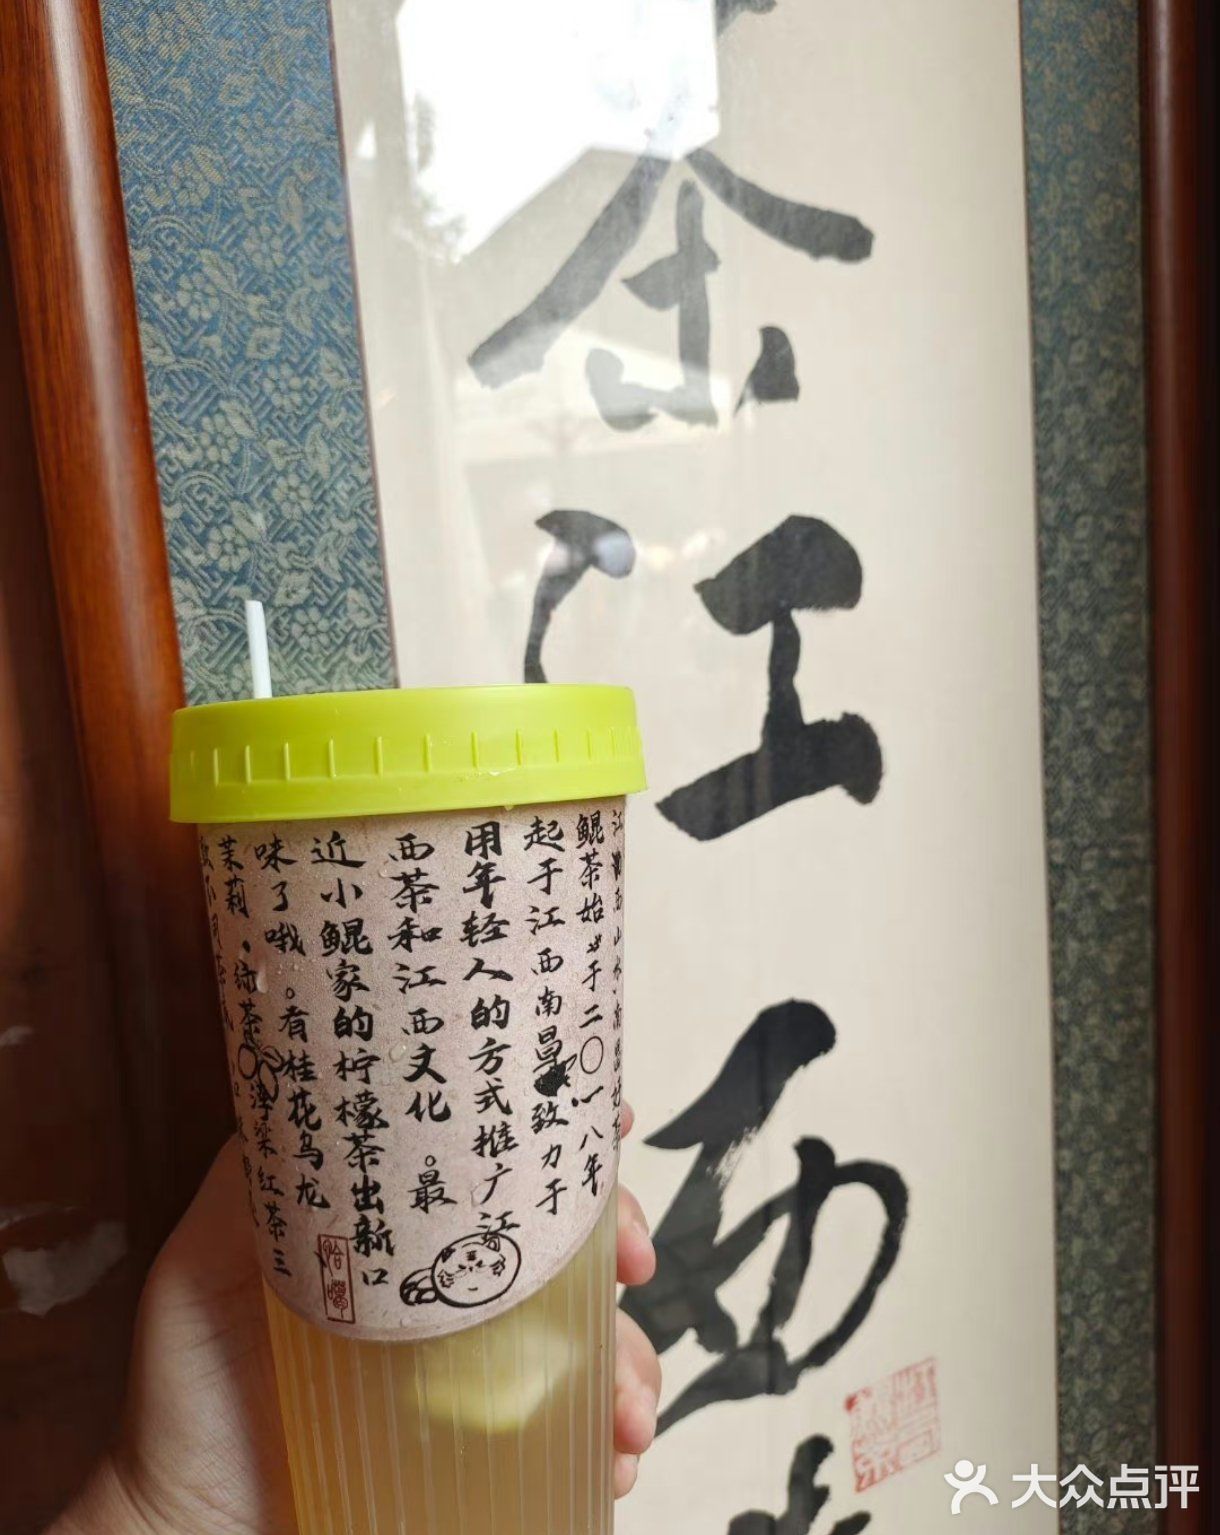 茶江西
江西山水南昌好茶
鲲茶始于二〇一八年
起于江西南昌致力于
用年轻人的方式推广江
西茶和江西文化。最
近小鲲家的柠檬茶出新口
味了哦。有桂花乌龙
茉莉绿茶
红茶三
大众点评